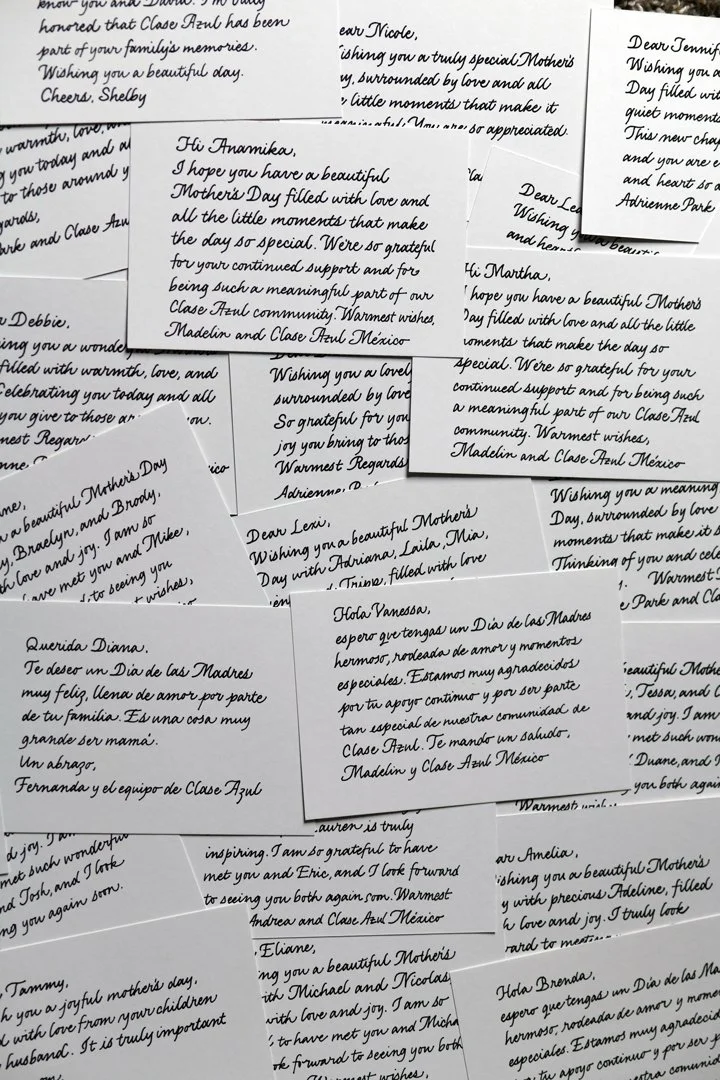 know you and David. I'm truly
honored that Clase Azul has been
part of your family's memories.
Wishing you a beautiful day.
Cheers, Shelby
ear Nicole,
ishing you a truly special Mother's
y, surrounded by love and all
e little moments that make it
meaningful. You are so appreciated.
Dear Jennif
Wishing you a
Day filled wit
quiet moments
This new chap
and you are e
and heart so a
Adrienne Park
warmth, love, an
g you today and al
to those around y
gards,
ark and Clase Azu
Hi Anamika,
I hope you have a beautiful
Mother's Day filled with love and
all the little moments that make
the day so special. We're so grateful
for your continued support and for
being such a meaningful part of our
Clase Azul community. Warmest wishes,
Madelin and Clase Azul México
Dear Le
Wishing you a beauti
and hear
Hi Martha,
I hope you have a beautiful Mother's
Day filled with love and all the little
moments that make the day so
special. We're so grateful for your
continued support and for being such
a meaningful part of our Clase Azul
community. Warmest wishes,
Madelin and Clase Azul México
Debbie,
ing you a wonde
filled with warmth, love, and
Celebrating you today and all
you give to those ar you.
mest Regar
nne xico
Wishing you a lovel
surrounded by love
So grateful for you
joy you bring to thos
Warmest Regards
Adrienne P
ne,
a beautiful Mother's Day
y, Braelyn, and Brody,
th love and joy. I am so
ave met you and Mike,
d to seeing you
st wishes,
Dear Lexi,
Wishing you a beautiful Mother's
Day with Adriana, Laila, Mia,
and Tripp, filled with love
Wishing you a meaning
Day, surrounded by love
moments that make it s
Thinking of you and cele
Warmest
e Park and Cla
Querida Diana,
Te deseo un Día de las Madres
muy feliz, llena de amor por parte
de tu familia. Es una cosa muy
grande ser mamá.
Un abrazo,
Fernanda y el equipo de Clase Azul
Hola Vanessa,
espero que tengas un Día de las Madres
hermoso, rodeada de amor y momentos
especiales. Estamos muy agradecidos
por tu apoyo continuo y por ser parte
tan especial de nuestra comunidad de
Clase Azul. Te mando un saludo,
Madelin y Clase Azul México
eautiful Mothe
, Tessa, and C
and joy. I am
met such won
Duane, and I
you both again
Warmest wish
d joy. I am
met such wonderful
nd Josh, and I look
ng you again soon.
auren is truly
inspiring. I am so grateful to have
met you and Eric, and I look forward
to seeing you both again soon. Warmest
Andrea and Clase Azul México
ar Amelia,
ishing you a beautiful Mother's
y with precious Adeline, filled
h love and joy. I truly look
ward to meeting
Tammy,
h you a joyful mother's day,
d with love from your children
husband. It is truly important
Eliane,
ng you a beautiful Mother's
ith Michael and Nicolas,
with love and joy. I am so
to have met you and Micha
ok forward to seeing you both
Warmest wishes,
Hola Brenda,
espero que tengas un Día de las Ma
hermoso, rodeada de amor y mome
especiales. Estamos muy agradecid
tu apoyo continuo y por ser p
nuestra comunid